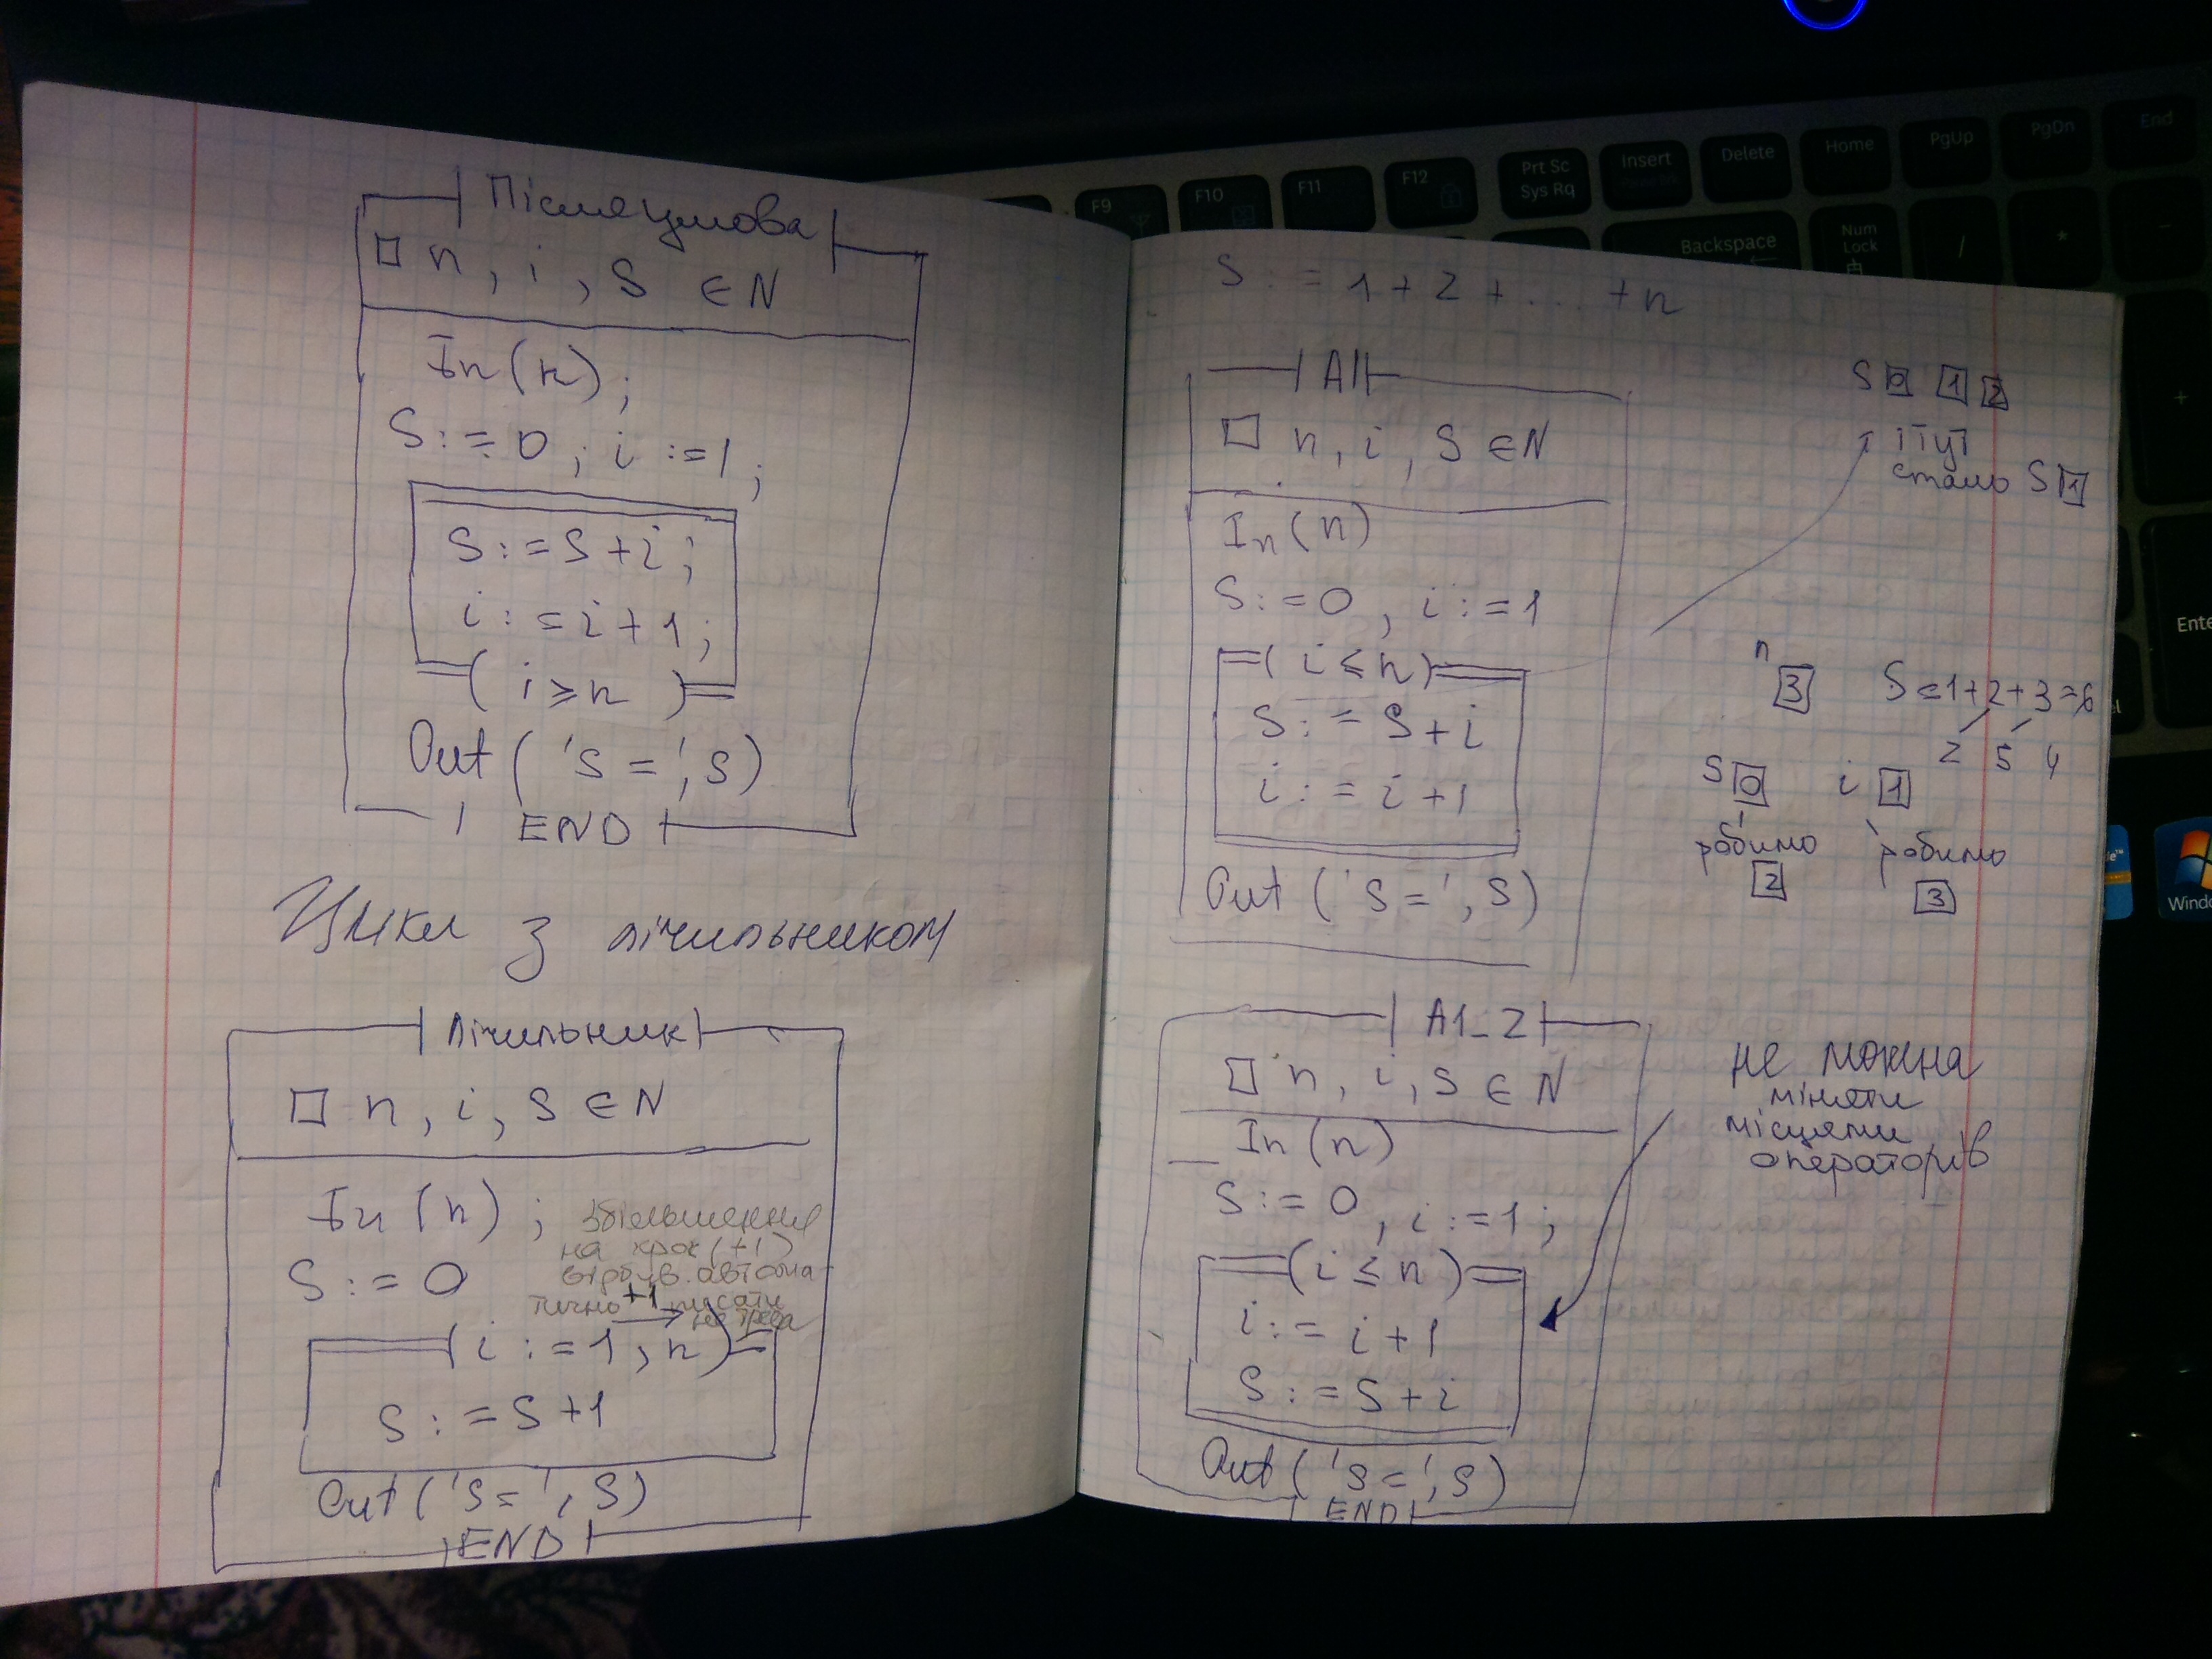 Післяумова
□ n, i, S ∈ N
In(n);
S:=0; i:=1;
S:=S+i;
i:=i+1;
(i≥n)
Out('S=',S)
END
Цикл з лічильником
Лічильник
□ n, i, S ∈ N
In(n);
S:=0
збільшення
на крок (+1)
автома-
тично +1 писати
не треба
(i:=1,n)
S:=S+1
Out('S=',S)
END
S:=1+2+...+n
A1
□ n, i, S ∈ N
In(n)
S:=0, i:=1
(i≤n)
S:=S+i
i:=i+1
Out('S=',S)
S 0 1 2
тут
стало S 1
n 3
S=1+2+3=6
2 5 4
S 0 i 1
робимо робимо
2 3
A1_2
□ n, i, S ∈ N
In(n)
S:=0, i:=1;
(i≤n)
i:=i+1
S:=S+i
Out('S=',S)
END
не можна
міняти
місцями
операторів
F9 F10 F11 F12
Prt Sc
Sys Rq
Insert
Delete
Home
PgUp
PgDn
End
Backspace
Num
Lock
/
*
-
+
Ente
Windo